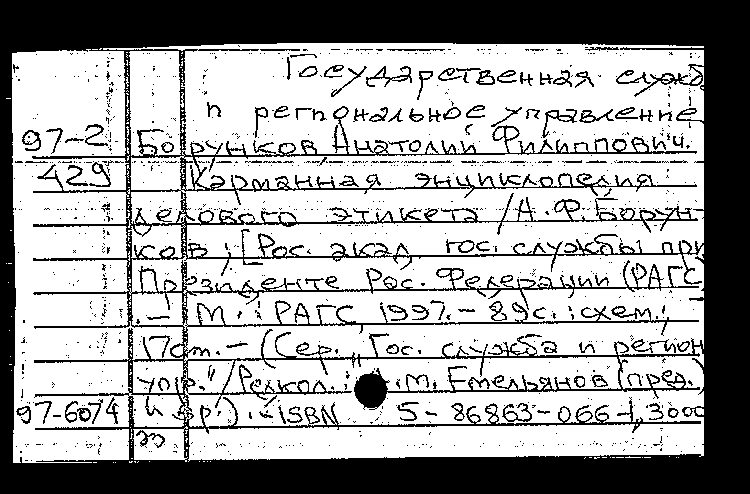 Государственная служб
и региональное управление
97-2 Борунков, Анатолий Филиппович.
429 Карманная энциклопедия
делового этикета / А.Ф. Борун-
ков; [Рос. акад. гос. службы при
Президенте Рос. Федерации (РАГС
.- М.: РАГС, 1997. - 89с.: схем.;
17cm. - (Сер. „Гос. служба и регион
упр." / Редкол.: А.М. Емельянов (пред.)
97-6074 и др.). - ISBN 5-86863-066-1, 3000